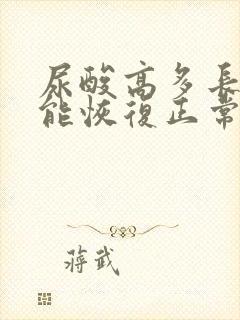 尿酸高多長
能恢復正常
蔣武